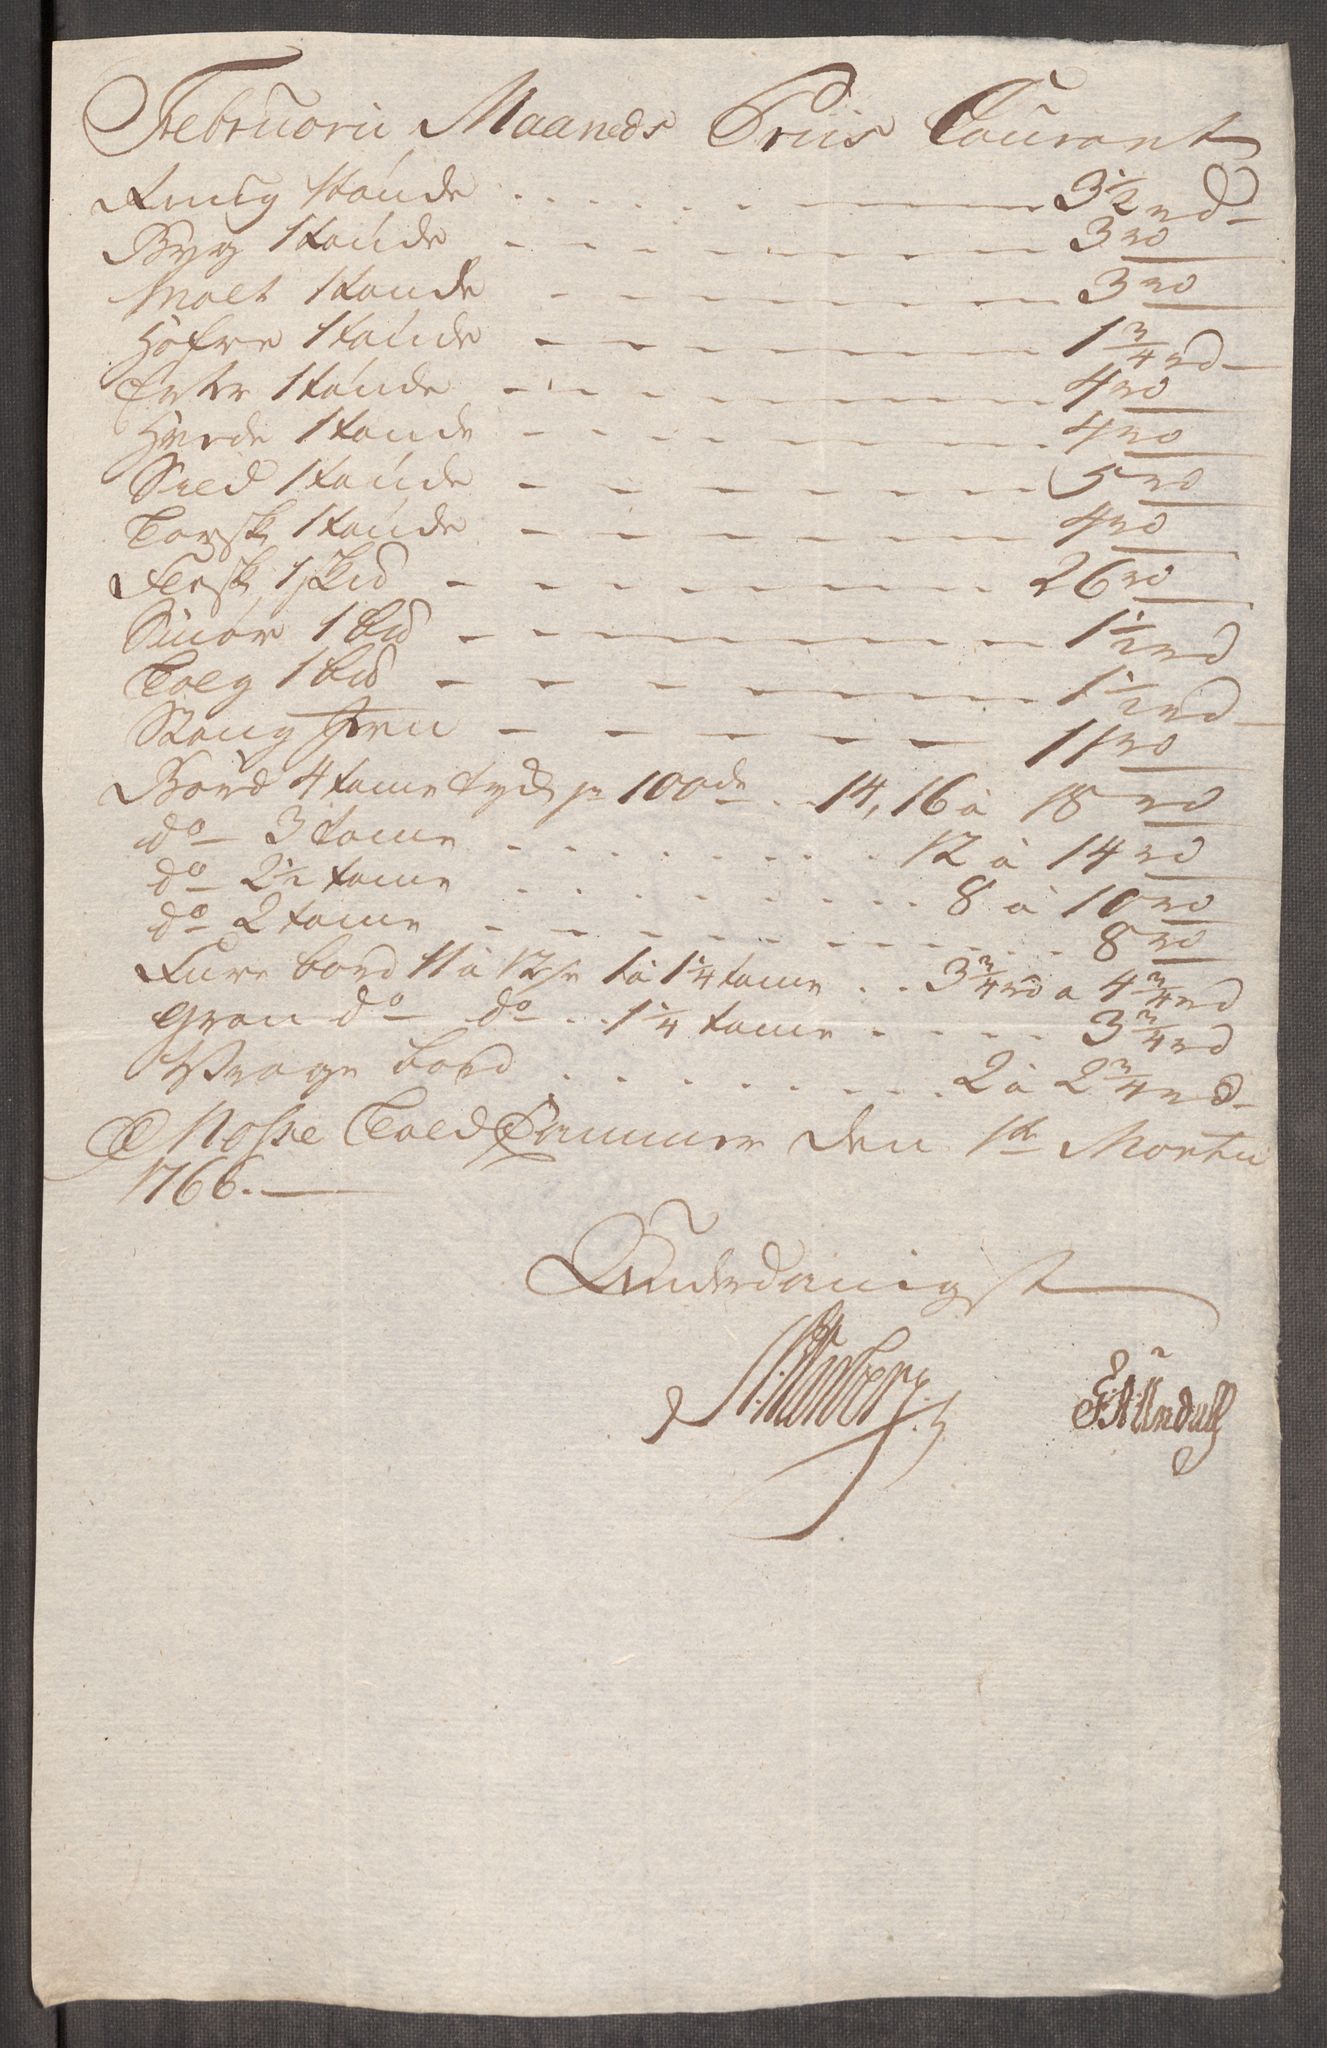 Februarii Maaneds Priis Courant
Rug 1 tønde . . . . . . 3½ rd
Byg 1 tønde - - - - - - 3 rd
Malt 1 tønde - - - - - - 3 rd
Hafre 1 tønde - - - - - - 1¾ rd
Erter 1 tønde - - - - - - 4 rd
Hvede 1 tønde - - - - - - 4 rd
Sild 1 tønde - - - - - - 5 rd
Torsk 1 tønde - - - - - - 4 rd
1 skd - - - - - - 26 rd
Smør 1 bd - - - - - - 1½ rd
Talg 1 bd - - - - - - 1½ rd
Stang Jern - - - - - 11 rd
Bord 4 tome tyk pr 100de . . 14, 16 à 18 rd
do 3 tome . . . . . . . . 12 à 14 rd
do 2½ tome . . . . . . . . 8 à 10 rd
do 2 tome - - - - - - . . . . 8 rd
Fure bord 11 à 12 1 à 1¼ tome . . 3¾ rd a 4¾ rd
Gran do do . . 1¼ tome . . . . 3¾ rd
Vrage bord . . . . . . . . . 2 à 2¾ rd
Mosse Told Cammer den 1te Martii
1766.
Underdanigst